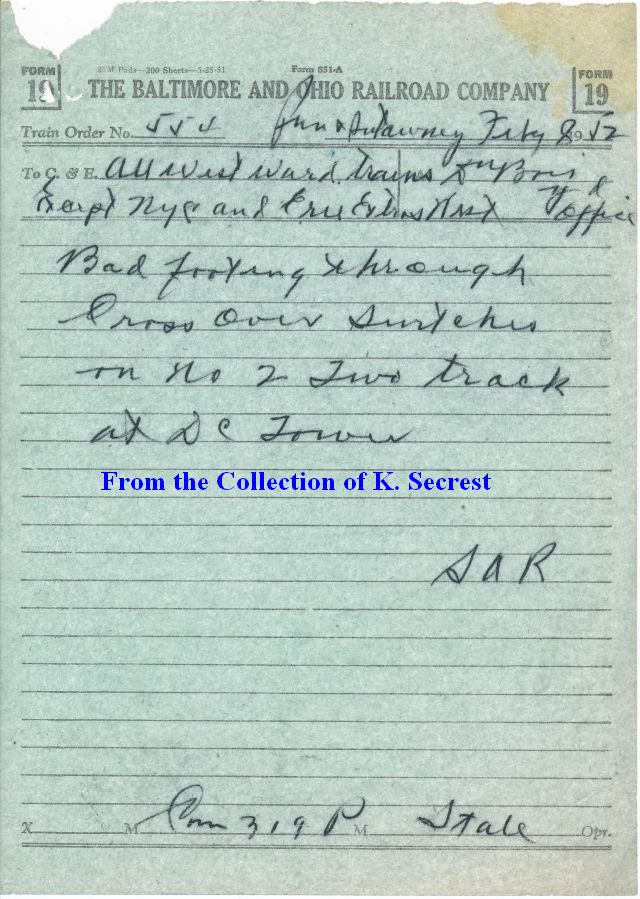 25M Pads—200 Sheets—5-25-51 Form 851-A
FORM 19 THE BALTIMORE AND OHIO RAILROAD COMPANY FORM 19
Train Order No. 554 Punxsutawney Feby 8 1952
To C. & E. All West ward trains
Except Nyc and Erie Extras West Office
Bad footing through
Cross Over Switches
on No 2 Two track
at DC Tower
From the Collection of K. Secrest
S A R
X M Com 319 P M Opr.